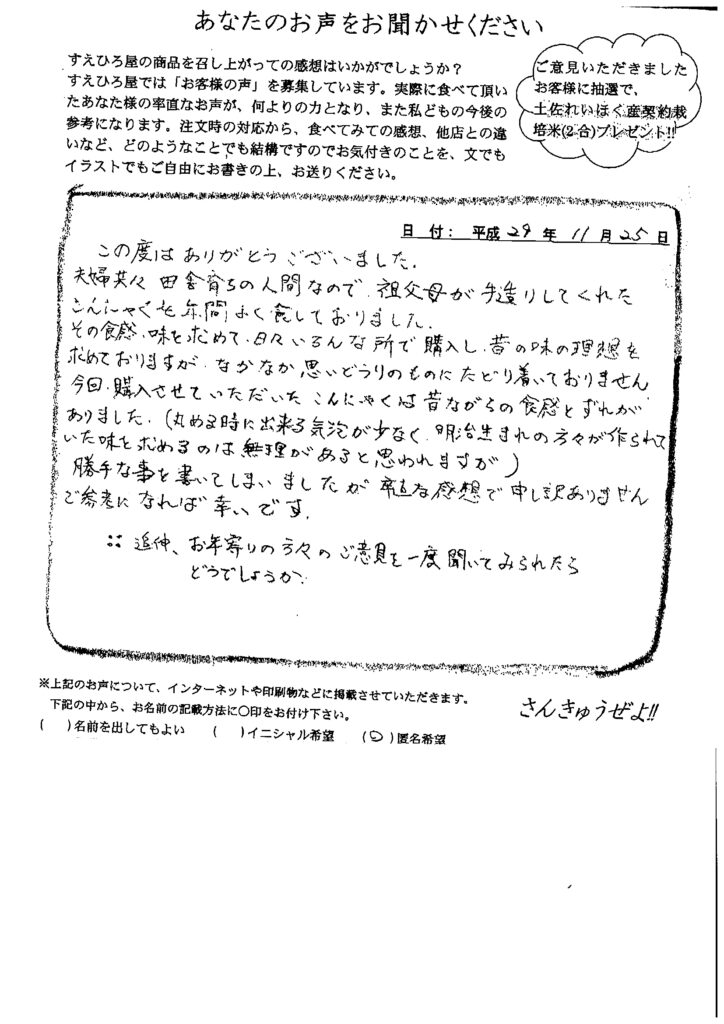 あなたのお声をお聞かせください
すえひろ屋の商品を召し上がっての感想はいかがでしょうか？
すえひろ屋では「お客様の声」を募集しています。実際に食べて頂い
たあなた様の率直なお声が、何よりの力となり、また私どもの今後の
参考になります。注文時の対応から、食べてみての感想、他店との違
いなど、どのようなことでも結構ですのでお気付きのことを、文でも
イラストでもご自由にお書きの上、お送りください。
ご意見いただきました
お客様に抽選で、
土佐れいほく産契約栽
培米(2合)プレゼント!!
日 付： 平成 29 年 11 月 25 日
この度はありがとうございました。
夫婦共々 田舎育ちの人間なので、祖父母が手造りしてくれた
こんにゃくを年間よく食しておりました。
その食感、味を求めて、日々いろんな所で購入し、昔の味の理想を
求めておりますが、なかなか思いどうりのものにたどり着いておりません
今回、購入させていただいたこんにゃくは昔ながらの食感とずれが
ありました。(丸める時に出来る気泡が少なく、明治生まれの方々が作られて
いた味を求めるのは無理があると思われますが)
勝手な事を書いてしまいましたが率直な感想で申し訳ありません
ご参考になれば幸いです。
:: 追伸、お年寄りの方々のご意見を一度聞いてみられたら
どうでしょうか。
※上記のお声について、インターネットや印刷物などに掲載させていただきます。
下記の中から、お名前の記載方法に〇印をお付け下さい。
(　)名前を出してもよい　(　)イニシャル希望　(〇)匿名希望
さんきゅうぜよ!!